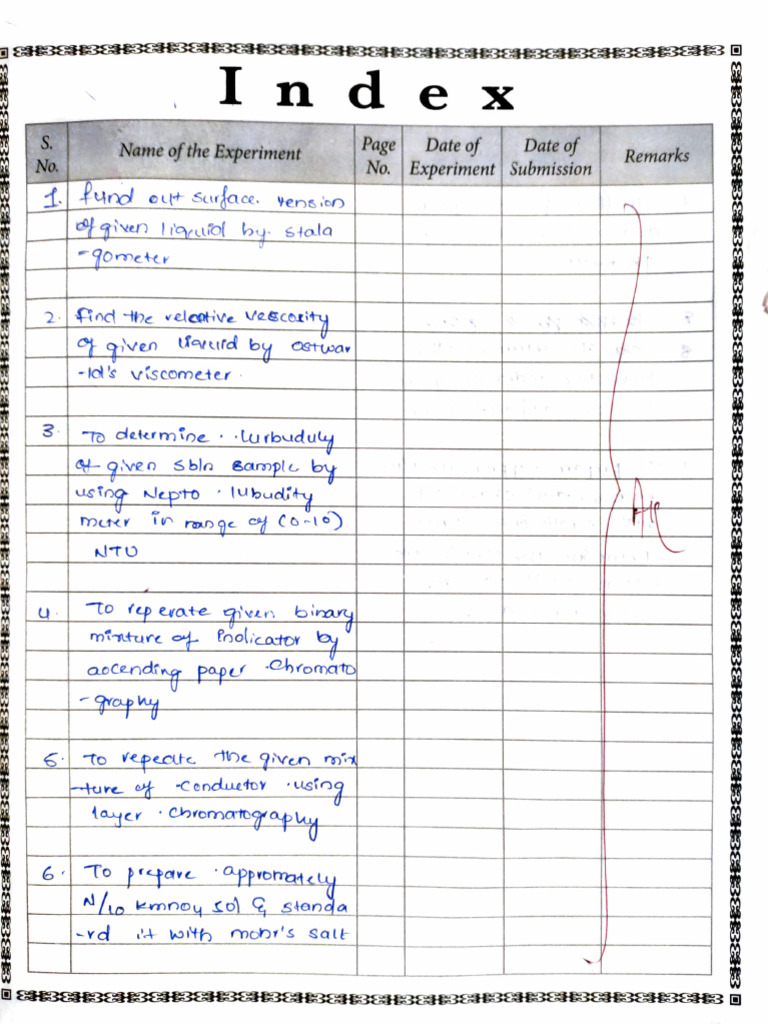 Index
S. No. Name of the Experiment Page No. Date of Experiment Date of Submission Remarks
1. fund out surface. tension
of given liquid by. stala
-gometer
2. find the relative vescosity
of given liquid by ostwar
-ld's viscometer.
3. To determine . . turbuduly
of given sbln sample by
using Nepto . tubudity
meter in range of (0-10)
NTU
4. To reperate given binary
mixture of Inolicator by
ascending paper .Chromato
-graphy
5. To repeate the given mix
-ture of -conductor .using
layer . chromatography
6. To prepare . appromately
N/10 kmno4 sol & standa
-rd it with mohr's salt